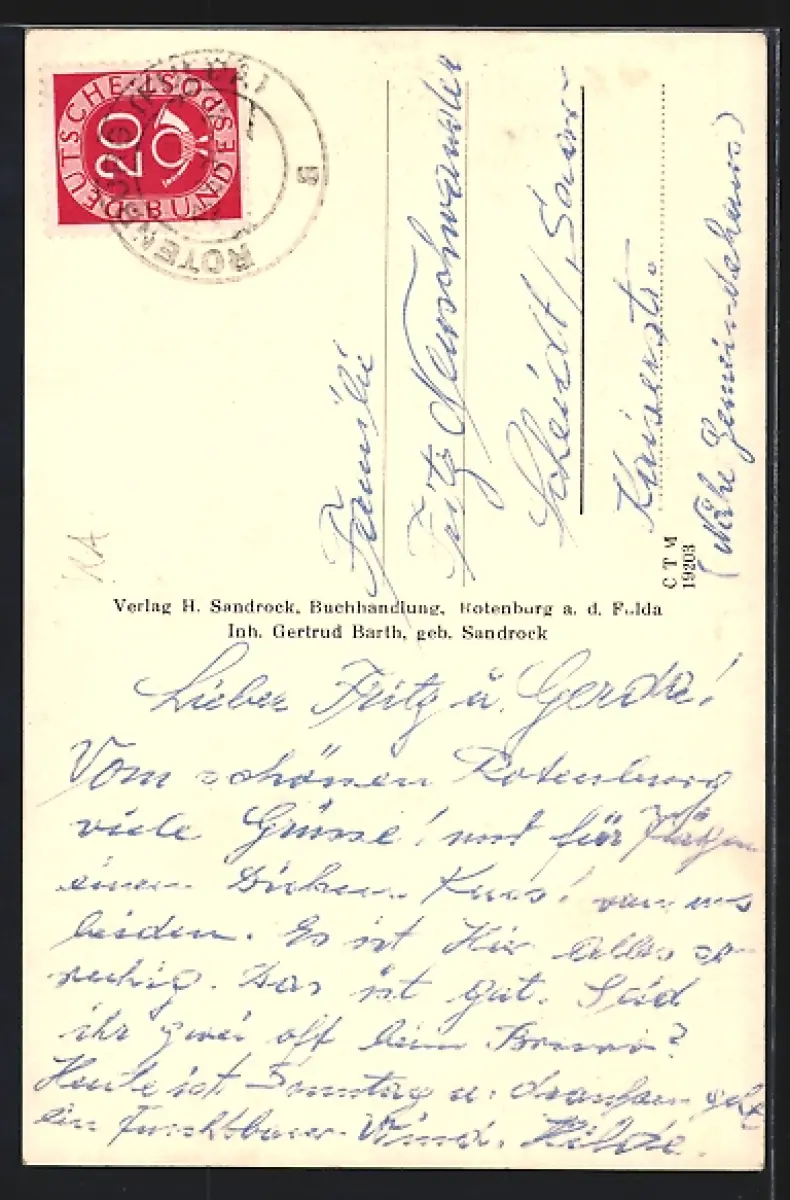 DEUTSCHE BUNDESPOST
20
ROTENBURG (FULDA) 1
Familie
Fritz Neuschwander
Scheidt/Saar
Kaiserstr.
(Nähe Gemeindehaus)
C T M
19203
Verlag H. Sandrock, Buchhandlung, Rotenburg a. d. Fulda
Inh. Gertrud Barth, geb. Sandrock
Lieber Fritz u. Gerda!
Vom schönen Rotenburg
viele Grüsse! und für Jürgen
einen dicken Kuss! von uns
beiden. Es ist hier alles so
ruhig. Das ist gut. Seid
ihr zwei oft beim
Heute ist Sonntag u. draußen geht
ein furchtbarer Wind. Hilde.